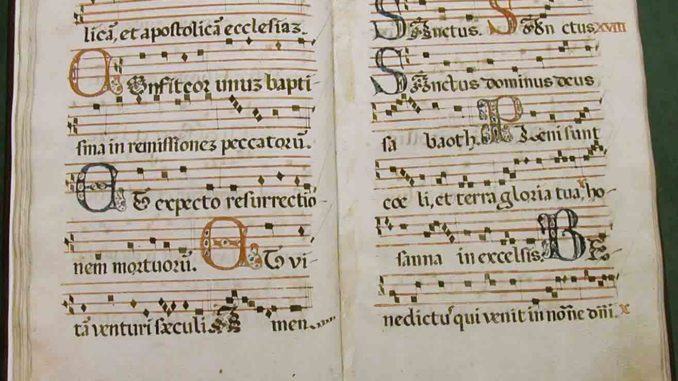 licã, et apostolicã ecclesiaz.
COnfiteor unuz bapti
sma in remissionez peccatorũ.
ET expecto resurrectio
nem mortuorũ. ET vi
tã venturi sæculi. A men.
SAnctus. SAn ctus xviii
SAnctus dominus deus
sa baoth. PLeni sunt
cœ li, et terra gloria tua, ho-
sanna in excelsis. BE-
nedictꝰ qui venit in noñe dñi. x